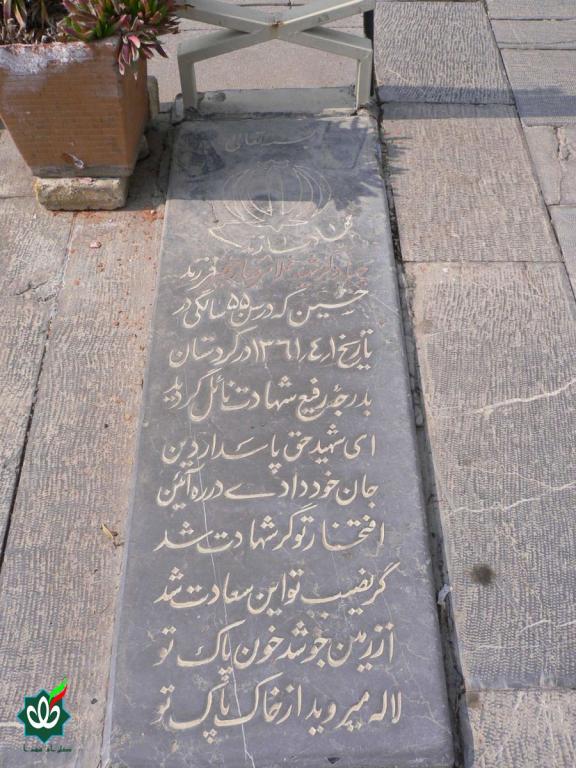 بسمه تعالی
فرزند
حسین که در سن ۵۵ سالگی در
تاریخ ۱٫۴٫۱۳۶۱ در کردستان
بدرجه رفیع شهادت نائل گردید
ای شهید حق پاسدار دین
جان خود دادے در ره آئین
افتخار تو گر شهادت شد
گر نصیب تو این سعادت شد
از زمین جوشد خون پاک تو
لاله میروید از خاک پاک تو